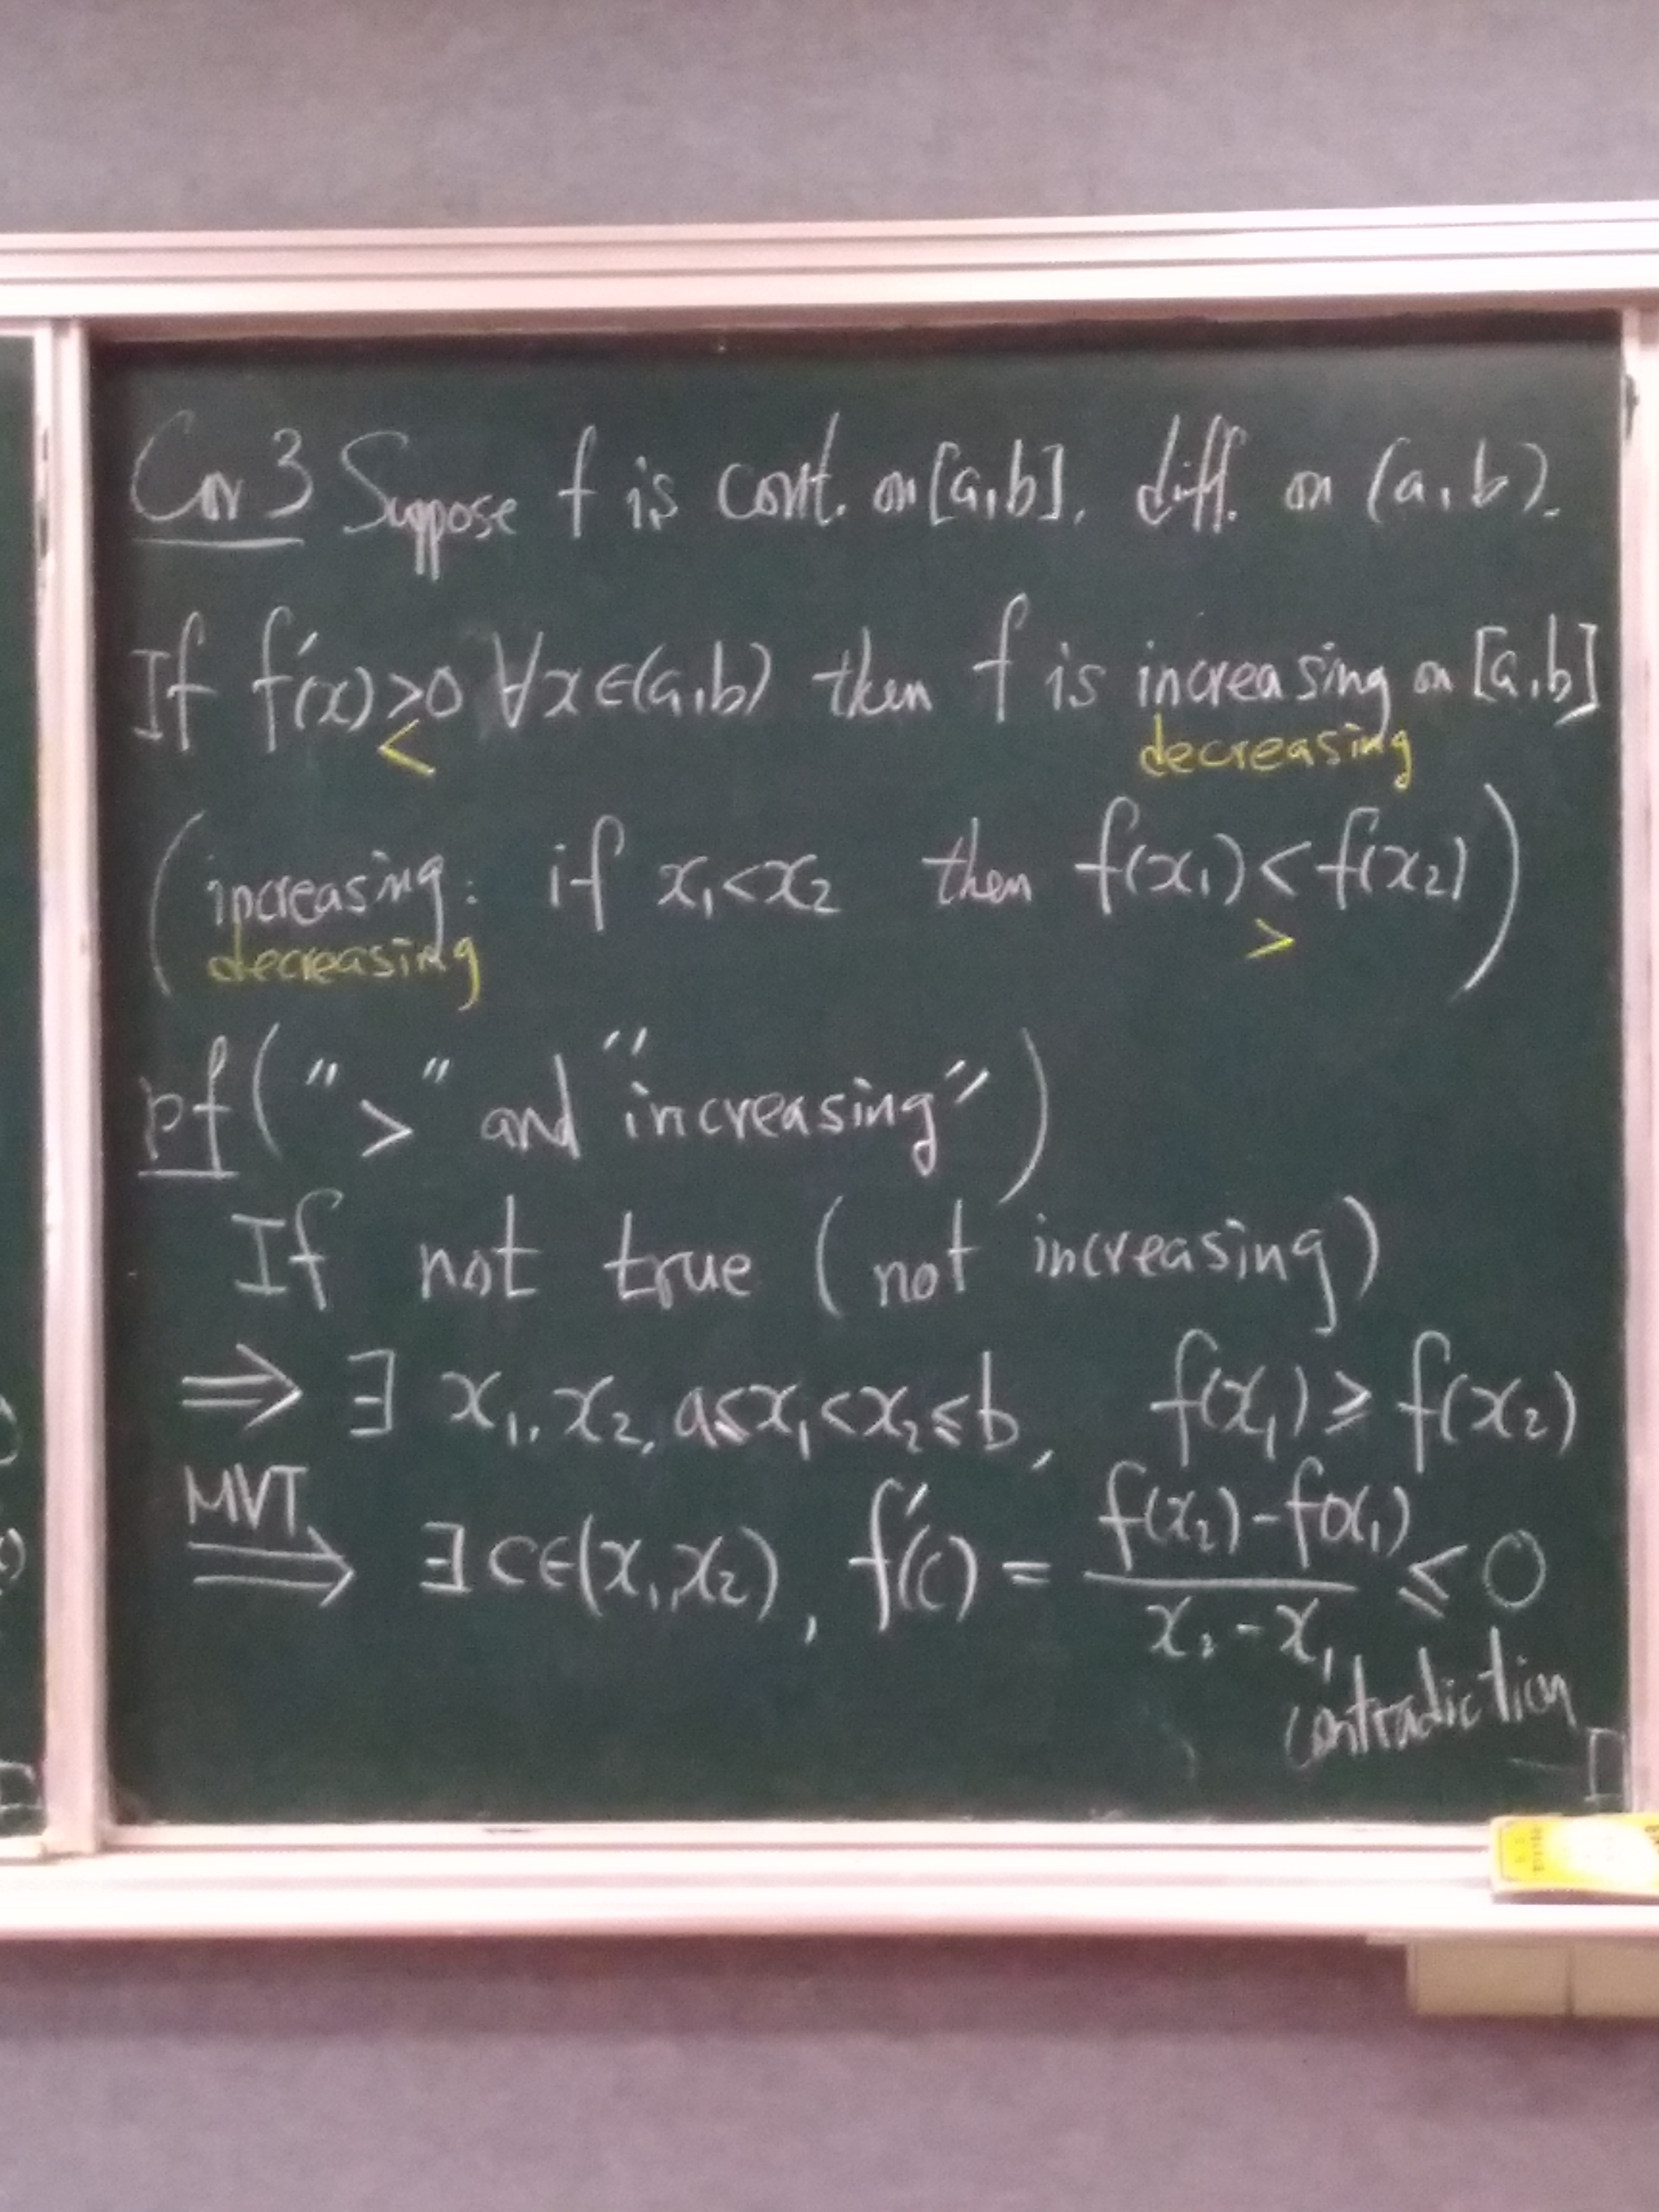 Cor 3 Suppose f is cont. on [a,b], diff. on (a,b).
If f'(x)>0 ∀x∈(a,b) then f is increasing on [a,b]
< decreasing
(increasing: if x₁<x₂ then f(x₁)<f(x₂))
decreasing >
pf (">" and "increasing")
If not true (not increasing)
⇒ ∃ x₁, x₂, a≤x₁<x₂≤b, f(x₁) ≥ f(x₂)
MVT
⇒ ∃ c∈(x₁,x₂), f'(c) = \frac{f(x₂)-f(x₁)}{x₂-x₁} ≤ 0
contradiction